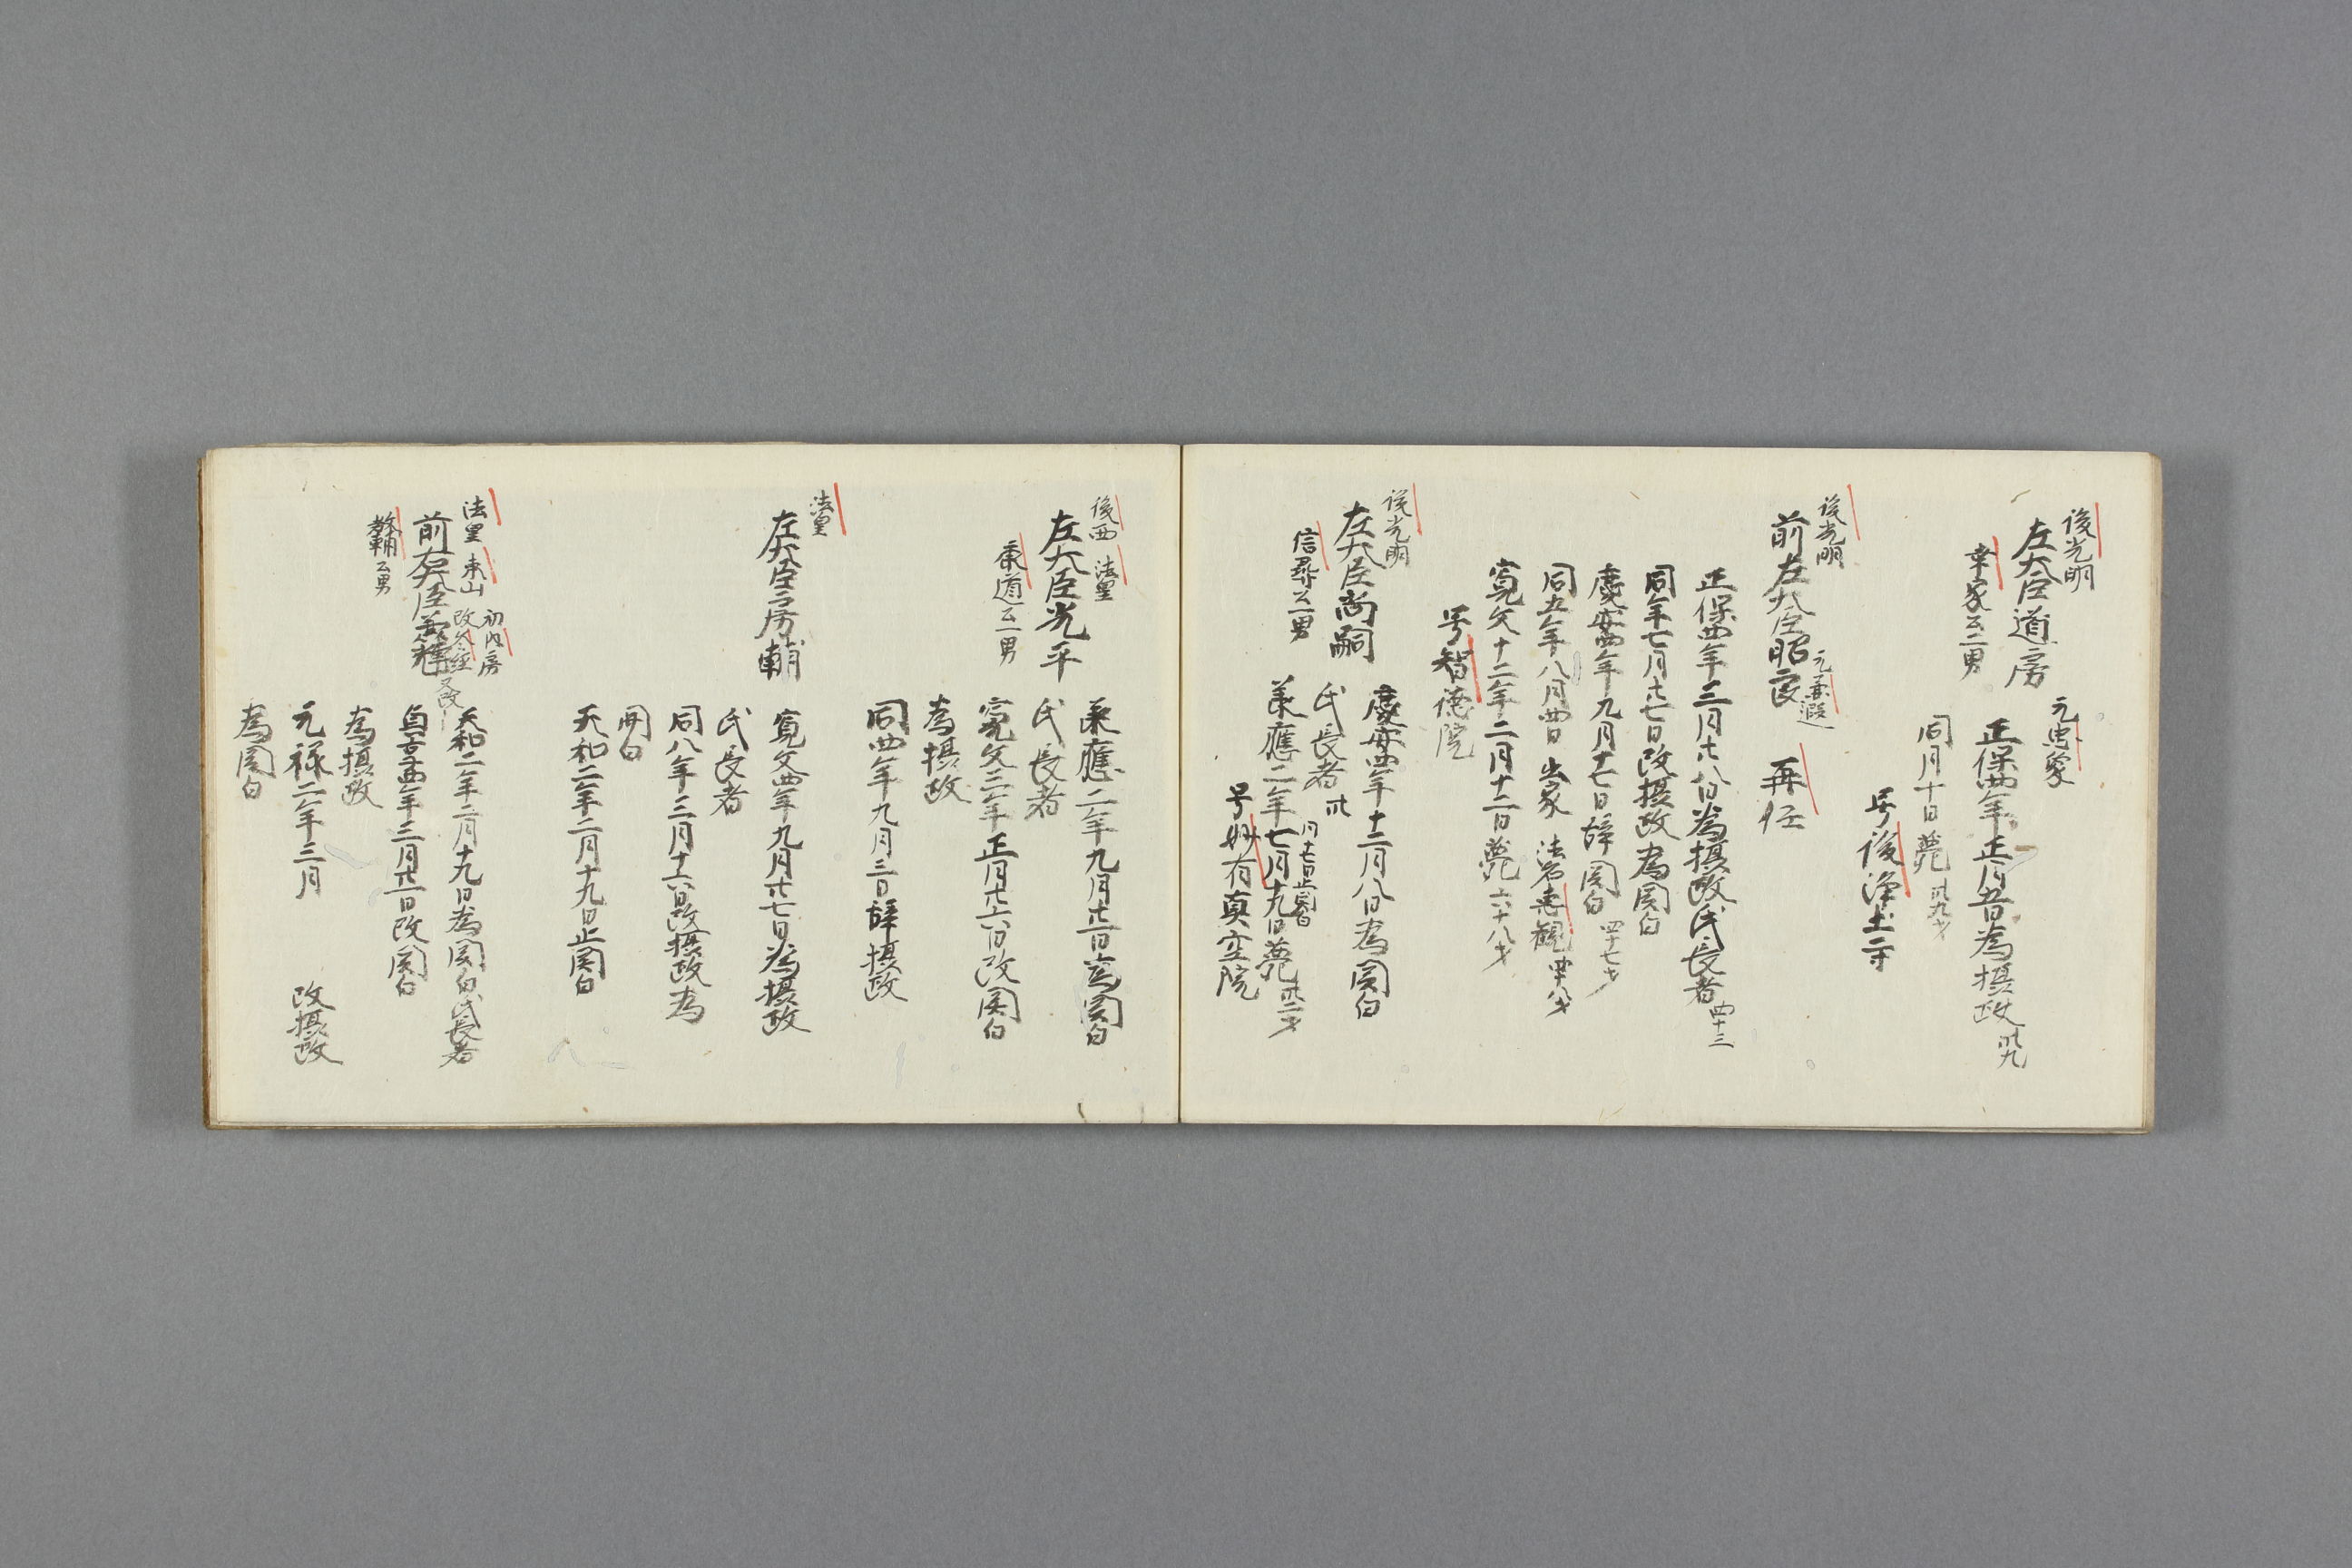 後光明
左大臣道房 元忠象
幸家公二男
正保四年正月五日為摂政 卅九
同月十日薨 卅九才
号後浄土寺
後光明
前左大臣昭良 元兼遐 再任
正保四年三月廿八日為摂政氏長者 四十三
同年七月廿七日改摂政為関白
慶安四年九月廿七日辞関白 四十七才
同五年八月四日出家 法名恵観 四十八才
寛文十二年二月十二日薨 六十八才
号智徳院
後光明
左大臣尚嗣
信尋公一男
慶安四年十二月八日為関白
氏長者 卅
承應二年七月十九日薨 卅二才
同月十七日止関白
号妙有真空院
後西 法皇
左大臣光平
康道公一男
承應二年九月廿一日為関白
氏長者
寛文三年正月廿六日改関白
為摂政
同四年九月三日辞摂政
法皇
左大臣房輔
寛文四年九月廿七日為摂政
氏長者
同八年三月十六日改摂政為
関白
天和二年二月十九日止関白
法皇 東山 初内房
改冬経 又改
前右大臣兼輝
教輔公男
天和二年二月十九日為関白氏長者
貞享四年三月廿一日改関白
為摂政
元禄二年三月 改摂政
為関白